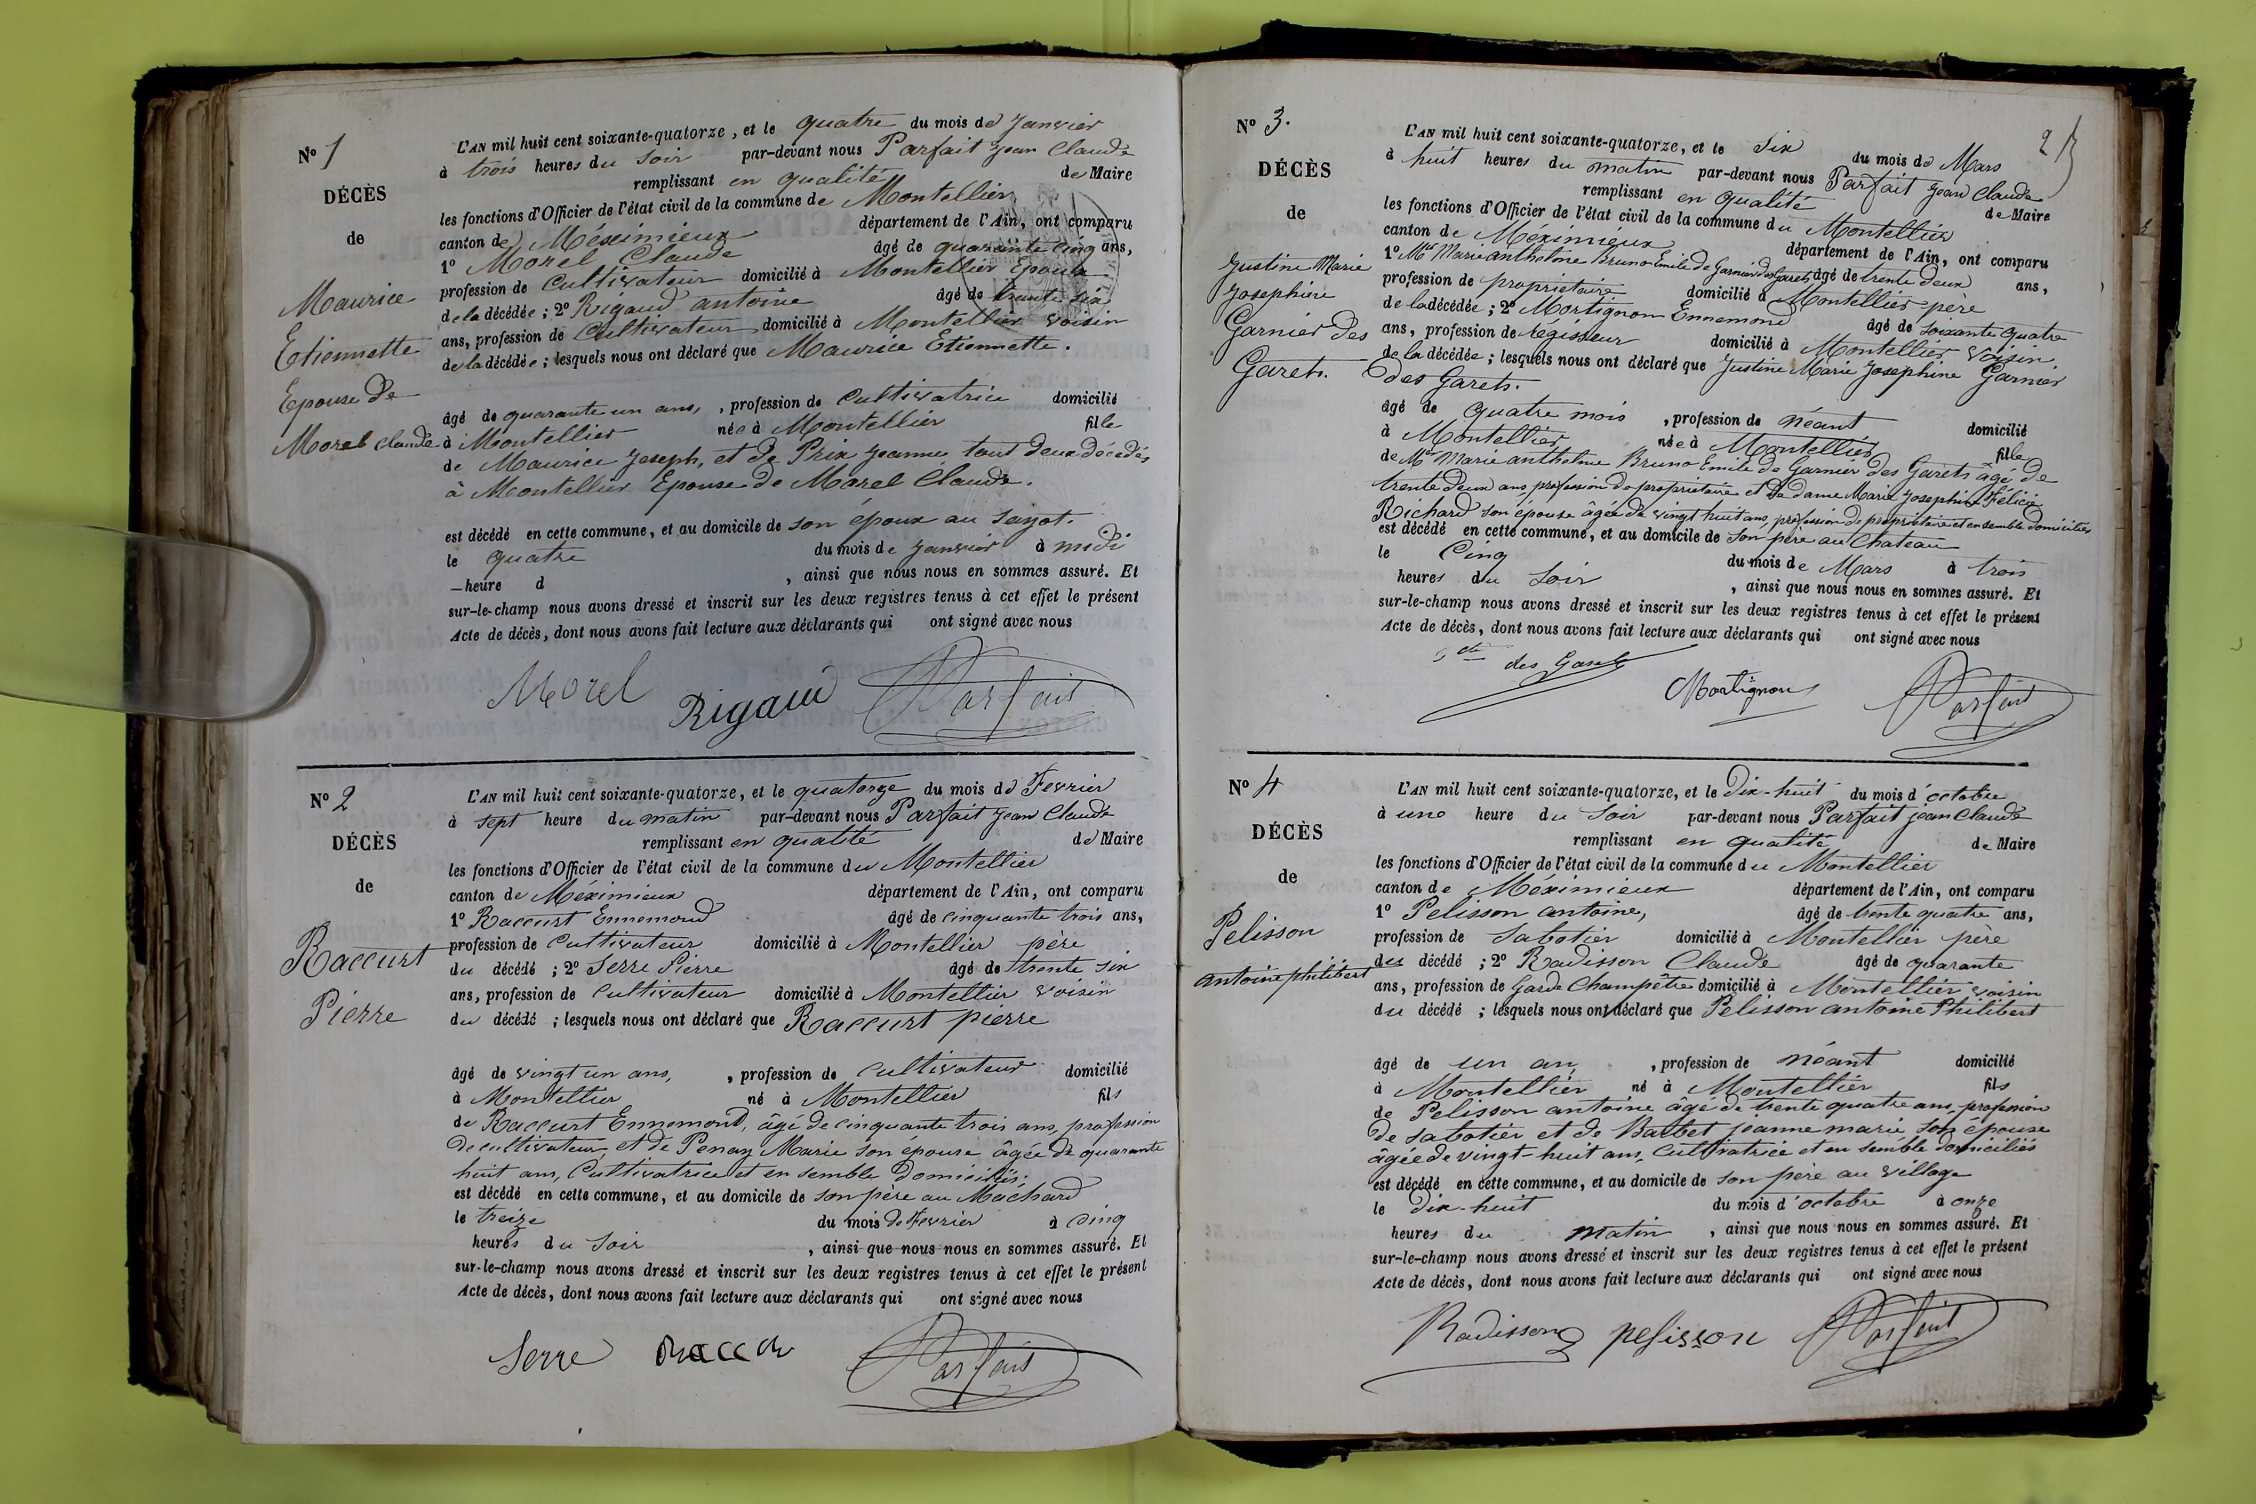 N° 1
DÉCÈS
de
Maurice
Etiennette
Epouse de
Morel Claude
L'AN mil huit cent soixante-quatorze, et le quatre du mois de Janvier
à trois heures du soir par-devant nous Parfait Jean Claude
remplissant en qualité de Maire
les fonctions d'Officier de l'état civil de la commune de Montellier
canton de Méximieux département de l'Ain, ont comparu
1° Morel Claude âgé de quarante cinq ans,
profession de Cultivateur domicilié à Montellier Epoux
de la décédée ; 2° Rigaud antoine âgé de trente six
ans, profession de Cultivateur domicilié à Montellier voisin
de la décédée ; lesquels nous ont déclaré que Maurice Etiennette.
âgé de quarante un ans, , profession de Cultivatrice domicilié
à Montellier née à Montellier fille
de Maurice Joseph, et de Prix Jeanne tout deux décédés
à Montellier Epouse de Morel Claude.
est décédé en cette commune, et au domicile de son époux au
le quatre du mois de Janvier à midi
— heure d , ainsi que nous nous en sommes assuré. Et
sur-le-champ nous avons dressé et inscrit sur les deux registres tenus à cet effet le présent
Acte de décès, dont nous avons fait lecture aux déclarants qui ont signé avec nous
Morel Rigaud Parfait
N° 2
DÉCÈS
de
Raccurt
Pierre
L'AN mil huit cent soixante-quatorze, et le quatorze du mois de Fevrier
à sept heure du matin par-devant nous Parfait Jean Claude
remplissant en qualité de Maire
les fonctions d'Officier de l'état civil de la commune du Montellier
canton de Méximieux département de l'Ain, ont comparu
1° Raccurt Ennemond âgé de cinquante trois ans,
profession de Cultivateur domicilié à Montellier père
du décédé ; 2° Serre Pierre âgé de trente six
ans, profession de Cultivateur domicilié à Montellier voisin
du décédé ; lesquels nous ont déclaré que Raccurt pierre
âgé de vingt un ans, , profession de Cultivateur domicilié
à Montellier né à Montellier fils
de Raccurt Ennemond, âgé de cinquante trois ans, profession
de cultivateur, et de Penay Marie son épouse âgée de quarante
huit ans, Cultivatrice et en semble domiciliés.
est décédé en cette commune, et au domicile de son père au Machard
le treize du mois de Fevrier à cinq
heures du soir , ainsi que nous nous en sommes assuré. Et
sur-le-champ nous avons dressé et inscrit sur les deux registres tenus à cet effet le présent
Acte de décès, dont nous avons fait lecture aux déclarants qui ont signé avec nous
Serre Parfait
N° 3.
DÉCÈS
de
Justine Marie
Josephine
Garnier des
Garets.
L'AN mil huit cent soixante-quatorze, et le six du mois de Mars
à huit heures du matin par-devant nous Parfait Jean Claude
remplissant en qualité de Maire
les fonctions d'Officier de l'état civil de la commune du Montellier
canton de Méximieux département de l'Ain, ont comparu
1° Mr Marie anthelme Bruno Emile de Garnier des Garets âgé de trente deux ans,
profession de propriétaire domicilié à Montellier père
de la décédée ; 2° Mortignon Ennemond âgé de soixante quatre
ans, profession de régisseur domicilié à Montellier voisin
de la décédée ; lesquels nous ont déclaré que Justine Marie Josephine Garnier
des Garets.
âgé de quatre mois , profession de néant domicilié
à Montellier née à Montellier fille
de Mr Marie anthelme Bruno Emile de Garnier des Garets âgé de
trente deux ans, profession de propriétaire et de dame Marie Josephine Félicie
Richard son épouse âgée de vingt huit ans, profession de propriétaire et ensemble domiciliés
est décédé en cette commune, et au domicile de son père au Chateau
le Cinq du mois de Mars à trois
heures du soir , ainsi que nous nous en sommes assuré. Et
sur-le-champ nous avons dressé et inscrit sur les deux registres tenus à cet effet le présent
Acte de décès, dont nous avons fait lecture aux déclarants qui ont signé avec nous
des Garets Mortignon Parfait
N° 4
DÉCÈS
de
Pelisson
antoine philibert
L'AN mil huit cent soixante-quatorze, et le Dix-huit du mois d'octobre
à une heure du soir par-devant nous Parfait jean Claude
remplissant en qualité de Maire
les fonctions d'Officier de l'état civil de la commune du Montellier
canton de Méximieux département de l'Ain, ont comparu
1° Pelisson antoine, âgé de trente quatre ans,
profession de Sabotier domicilié à Montellier père
du décédé ; 2° Radisson Claude âgé de quarante
ans, profession de Garde Champêtre domicilié à Montellier voisin
du décédé ; lesquels nous ont déclaré que Pelisson antoine Philibert
âgé de un an , profession de néant domicilié
à Montellier né à Montellier fils
de Pelisson antoine âgé de trente quatre ans, profession
de sabotier et de Barbet jeanne marie son épouse
âgée de vingt-huit ans, Cultivatrice et en semble domiciliés
est décédé en cette commune, et au domicile de son père au village
le Dix-huit du mois d'octobre à onze
heures du matin , ainsi que nous nous en sommes assuré. Et
sur-le-champ nous avons dressé et inscrit sur les deux registres tenus à cet effet le présent
Acte de décès, dont nous avons fait lecture aux déclarants qui ont signé avec nous
Radisson pelisson Parfait